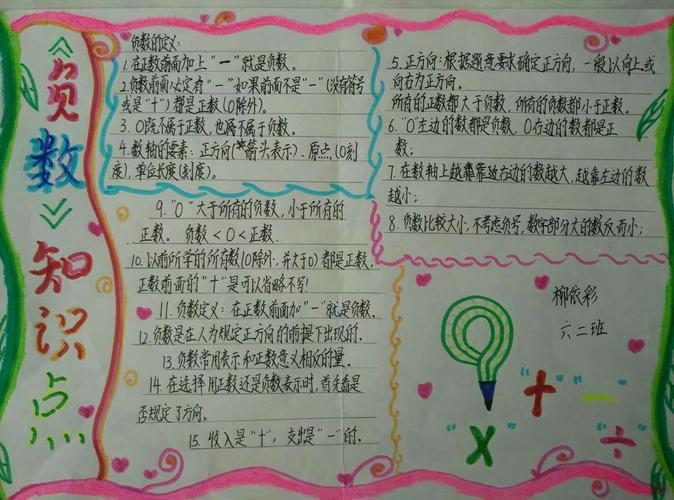 《负数》知识点
负数的定义:
1.在正数前面加上"一"就是负数。
2.负数前面必定有"一"如果前面不是"一"(没有符号
或是"十")都是正数(0除外)。
3. 0既不属于正数,也不属于负数。
4.数轴的要素:正方向(箭头表示)、原点(0刻
度)、单位长度(刻度)。
9. "0"大于所有的负数,小于所有的
正数。 负数<0<正数.
10. 以前所学的所有数(0除外.并大于0)都是正数,
正数前面的"十"是可以省略不写!
11. 负数定义:在正数前面加"一"就是负数。
12. 负数是在人为规定正方向的前提下出现的。
13. 负数常用表示和正数意义相反的量。
14. 在选择用正数还是负数表示时,首先看是
否规定了方向。
15. 收入是"十",支出是"一"的。
5.正方向:根据题意要求确定正方向,一般以向上或
向右为正方向。
所有的正数都大于负数,所有的负数都小于正数。
6. "0"左边的数都是负数,0右边的数都是正
数;
7. 在数轴上越靠右边的数越大,越靠左边的数
越小;
8. 负数比较大小,不考虑负号,数字部分大的数反而小;
柳依彩
六二班
"+" "−"
"×" "÷"